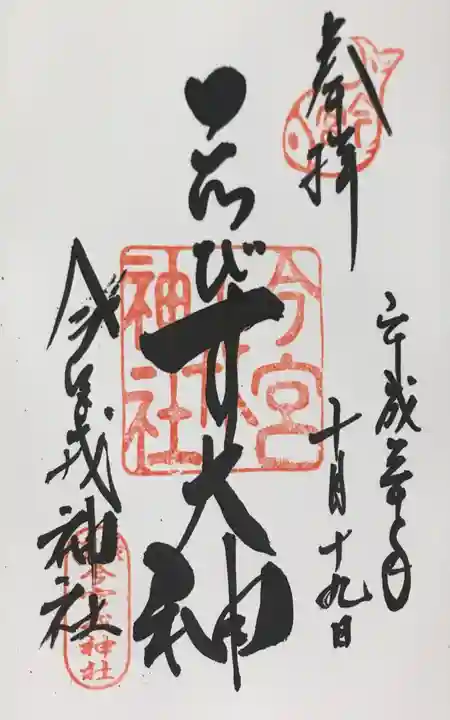 奉拝
平成 年
十月十九日
ゑびす大神
今宮
戎
神社
今宮戎神社
今宮戎神社